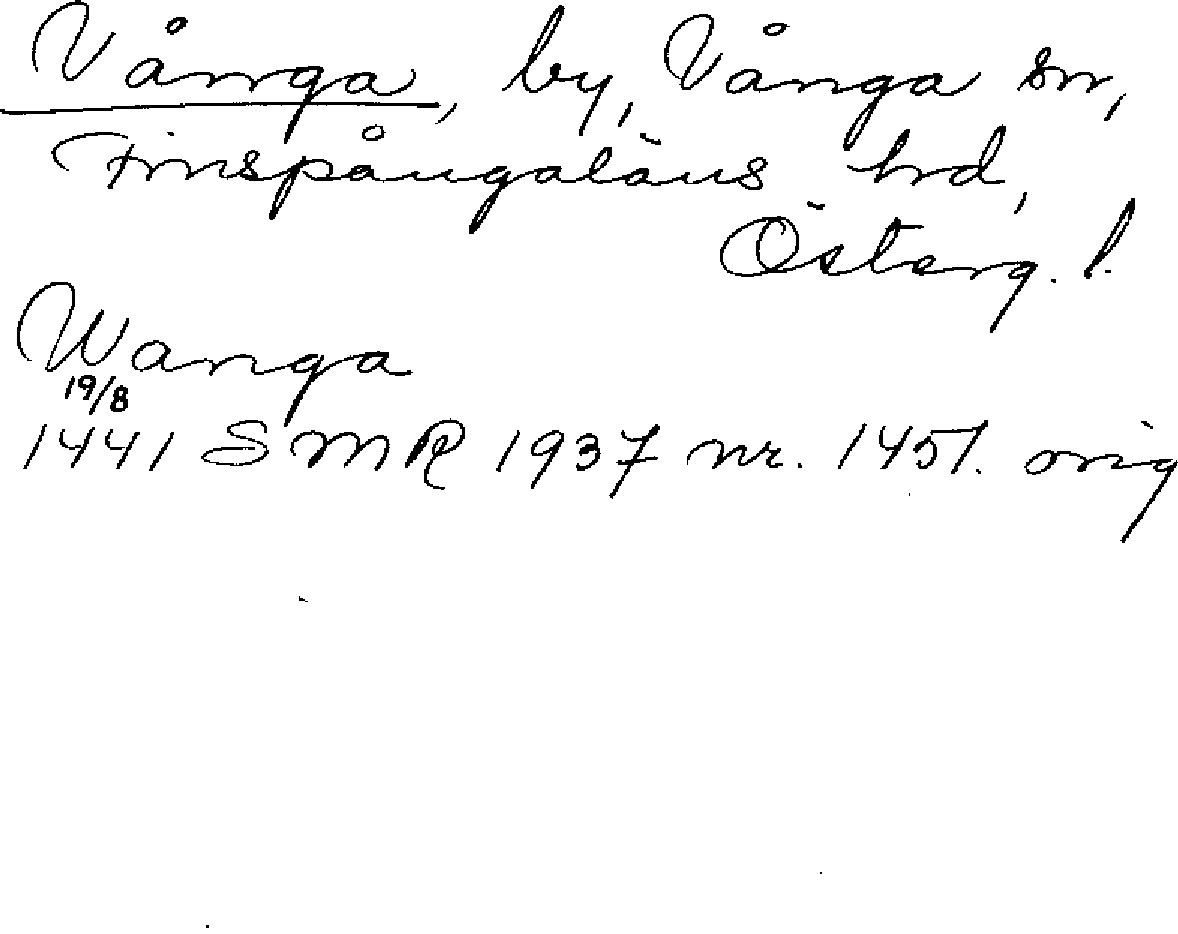 Vånga, by, Vånga sn,
Finspångaläns hrd,
Österg. l.
Wanga
19/8
1441 SMR 1937 nr. 1451. orig